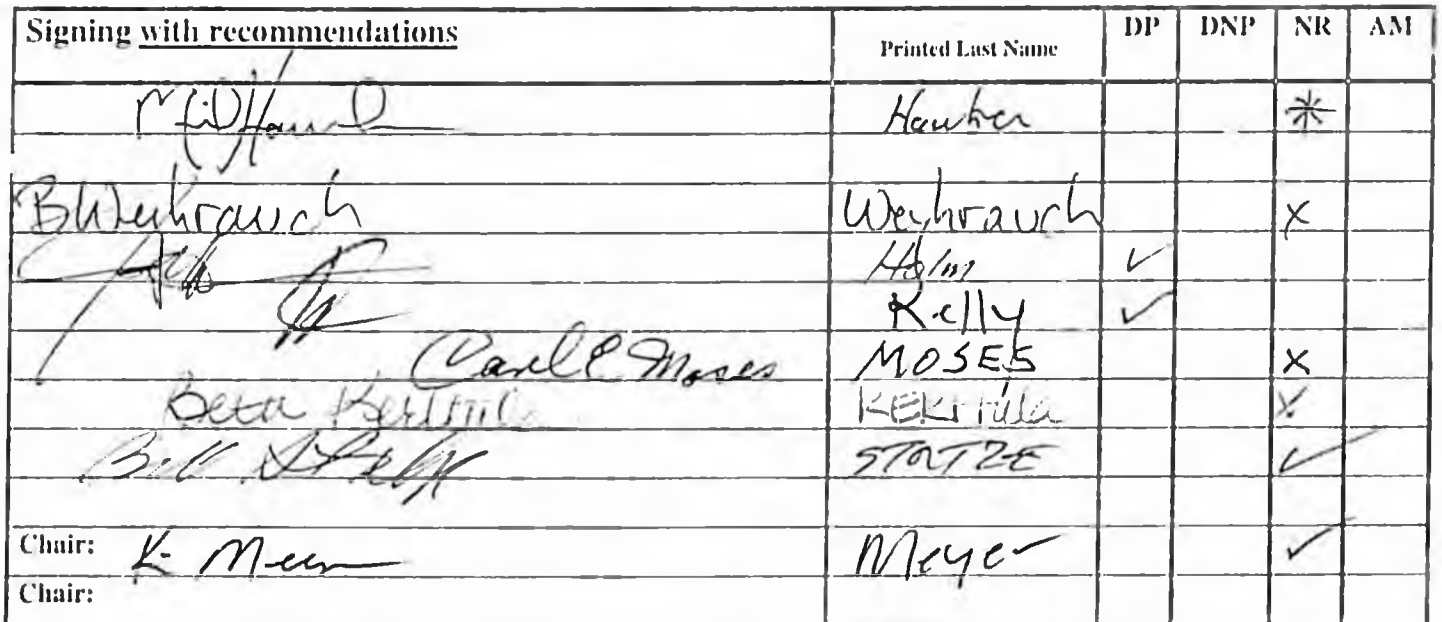 Signing with recommendations Printed Last Name DP DNP NR AM
Hawker *
BWeyhrauch Weyhrauch x
Holm ✓
Kelly ✓
Carl E Moses MOSES x
Beth x
Bill STOLTZE ✓
Chair: K Meyer ✓
Chair: